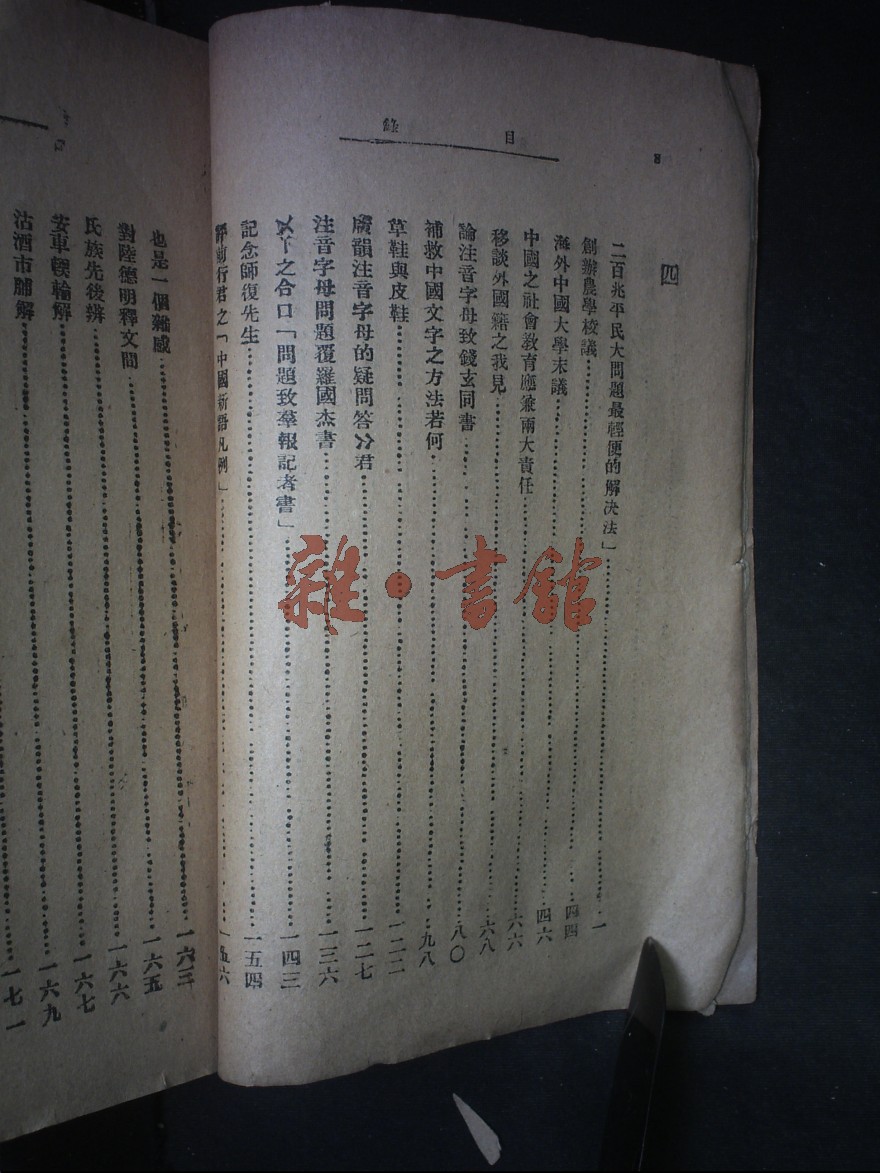 目錄
8
四
二百兆平民大問題最輕便的解決法」…………一
創辦農學校議…………四四
海外中國大學末議…………四六
中國之社會教育應兼兩大責任…………六六
移談外國籍之我見…………六八
論注音字母致錢玄同書…………八〇
補救中國文字之方法若何…………九八
草鞋與皮鞋…………一二二
廣韻注音字母的疑問答㕕君…………一二七
注音字母問題覆羅國杰書…………一三六
ㄨㄚ之合口「問題致莘報記者書」…………一四三
記念師復先生…………一五四
前行君之「中國新語凡例」…………一五六
也是一個雜感…………一六三
對陸德明釋文間…………一六五
氏族先後辨…………一六六
安車輭輪解…………一六七
沽酒市脯解…………一六九
一七一
雜·書館